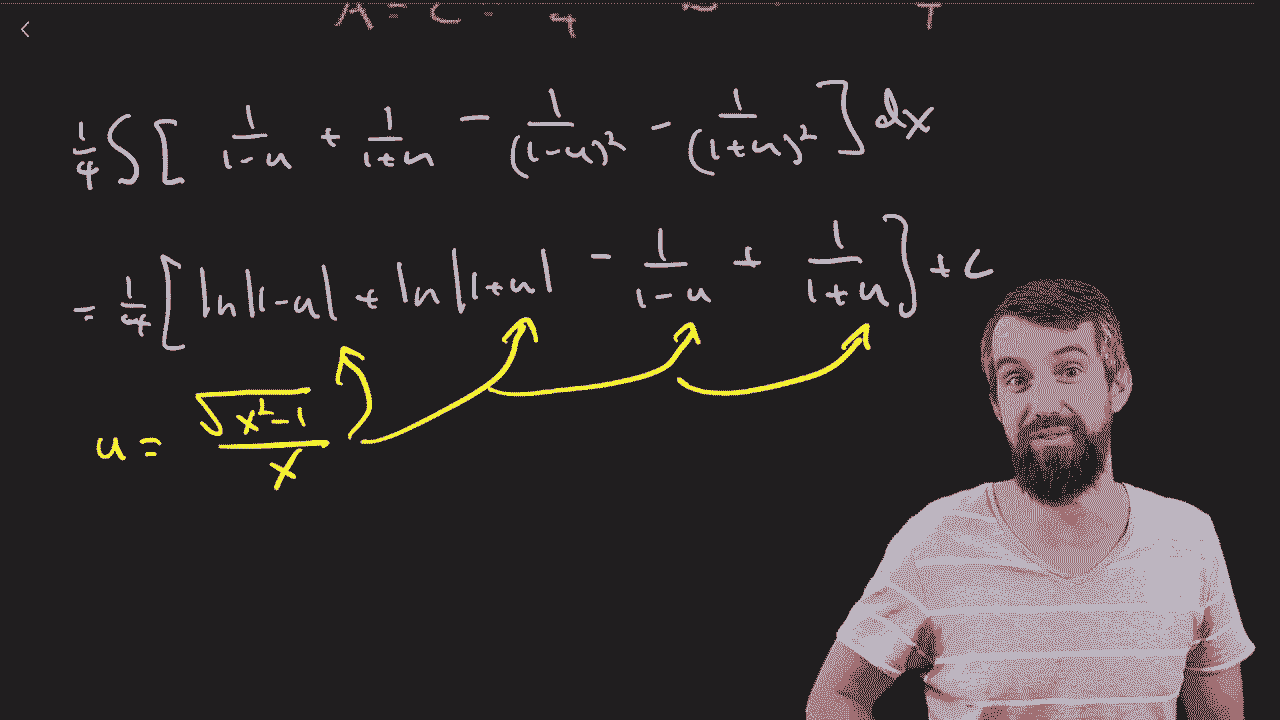 A = C = 4
1/4 ∫ [ 1/(1-u) + 1/(1+u) - 1/(1-u)² - 1/(1+u)² ] dx
= 1/4 [ ln|1-u| + ln|1+u| - 1/(1-u) + 1/(1+u) ] + C
u = √(x²-1) / x